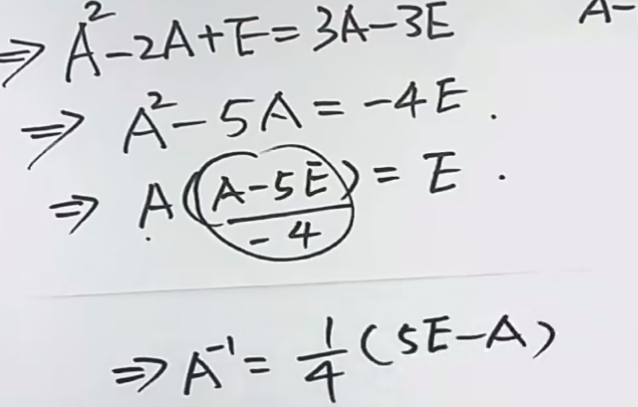 ⇒ A²-2A+E=3A-3E A-
⇒ A²-5A=-4E.
⇒ A((A-5E)/-4)=E.
⇒ A⁻¹=1/4(5E-A)